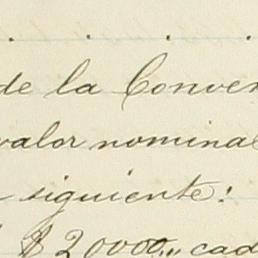 de la Conven
valor nominal
siguiente:
$ 20000,,, cad